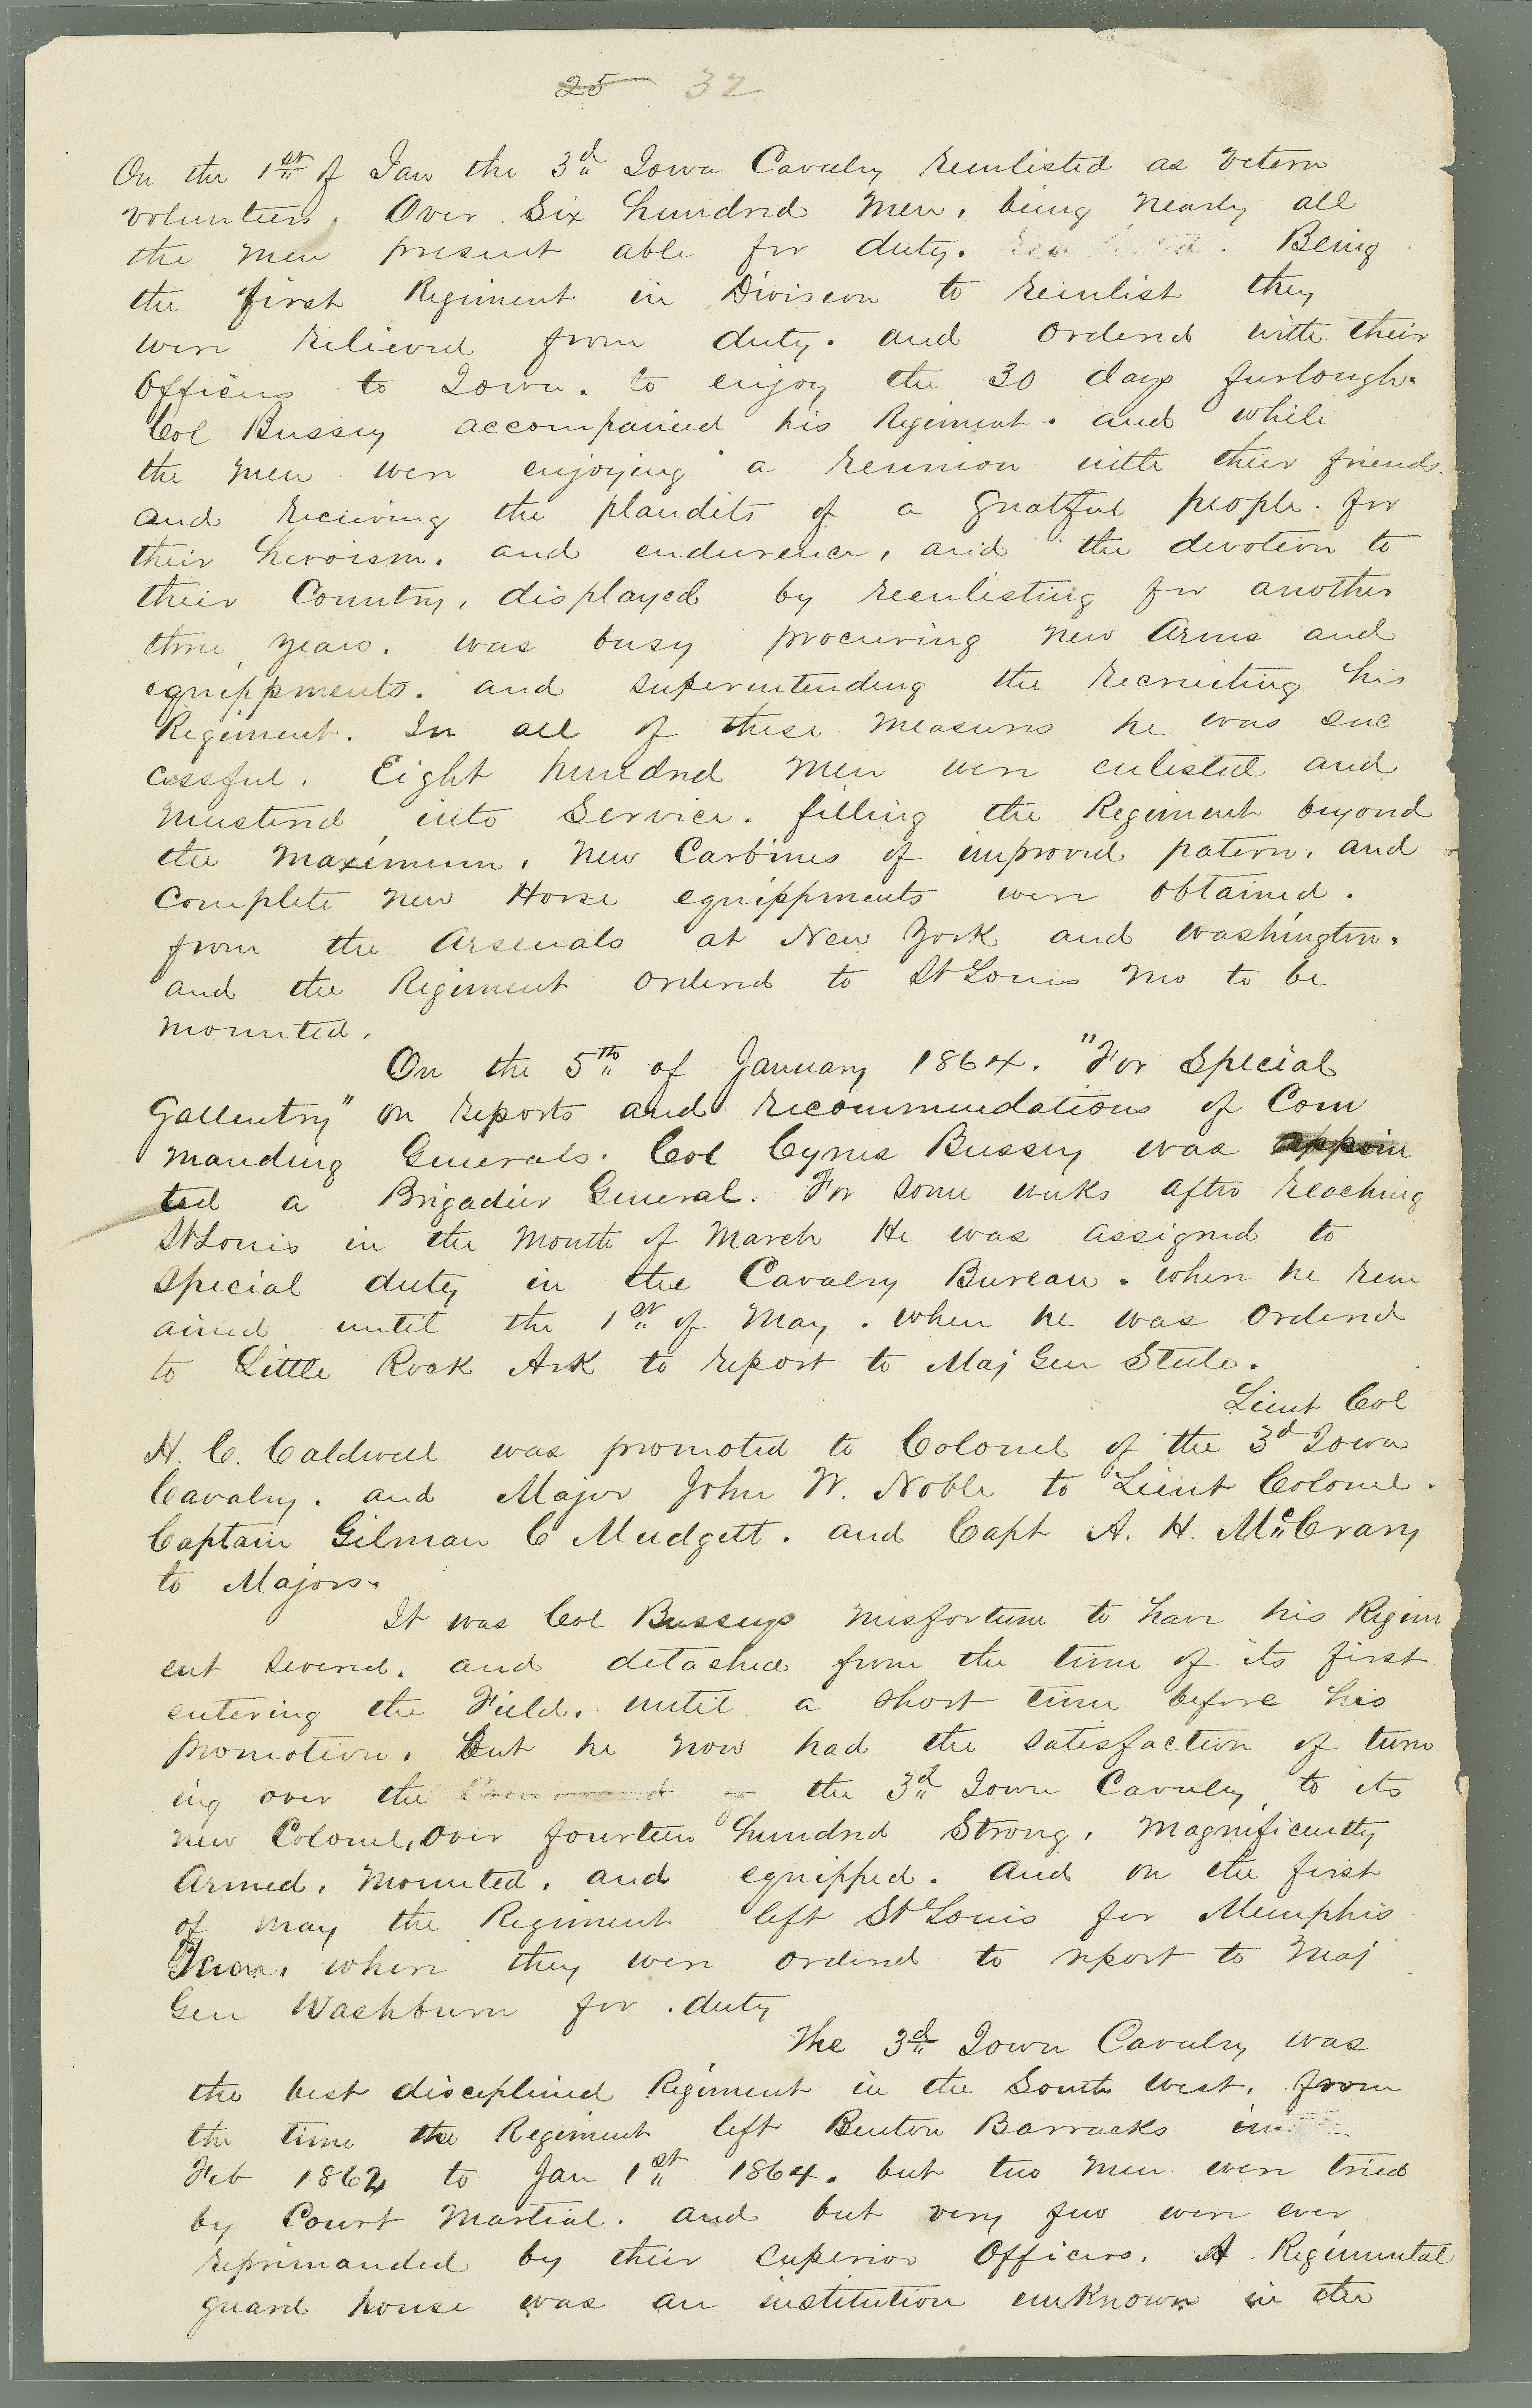 25 32
On the 1st of Jan the 3d Iowa Cavalry reenlisted as vetern
volunteers. Over Six hundred Men, being nearly all
the men present able for duty. Being
the first Regiment in Division to reenlist they
were relieved from duty. and ordered with their
Officers to Iowa. to enjoy the 30 days furlough.
Col Bussey accompanied his Regiment. and while
the men were enjoying a reunion with their friends.
and receiving the plaudits of a greatful people. for
their heroism. and endurence, and the devotion to
their Country, displayed by reenlisting for another
three years. was busy procuring new Arms and
equippments. and superintending the recruiting his
Regiment. In all of these measures he was suc
cessful. Eight hundred men were enlisted and
mustered into Service. filling the Regiment beyond
the maximum. New Carbines of improved patern. and
Complete new Horse equippments were obtained.
from the Arsenals at New York and Washington.
and the Regiment ordered to St Louis Mo to be
mounted.
On the 5th of January 1864. "For Special
Gallentry" on reports and recommendations of Com
manding Generals. Col Cyrus Bussey was appoin
ted a Brigadier General. For some weeks after reaching
St Louis in the Month of March He was assigned to
special duty in the Cavalry Bureau. where he rem
ained until the 1st of May. when he was ordered
to Little Rock Ark to report to Maj Gen Steele.
Lieut Col
H. C. Caldwell was promoted to Colonel of the 3d Iowa
Cavalry. and Major John W. Noble to Lieut Colonel.
Captain Gilman C Mudgett. and Capt A. H. McCrary
to Majors.
It was Col Busseys misfortune to have his Regim
ent severed. and detached from the time of its first
entering the Field. until a short time before his
promotion. But he now had the satisfaction of turn
ing over the Command of the 3d Iowa Cavalry to its
new Colonel, over fourteen hundred Strong, Magnificently
Armed, Mounted, and equipped. And on the first
of May the Regiment left St Louis for Memphis
Tenn. where they were ordered to report to Maj
Gen Washburn for duty
The 3d Iowa Cavalry was
the best disciplined Regiment in the South West. from
the time the Regiment left Benton Barracks in
Feb 1862 to Jan 1st 1864. but two men were tried
by Court Martial. and but very few were ever
reprimanded by their Superior Officers. A Regimental
guard house was an institution unknown in the